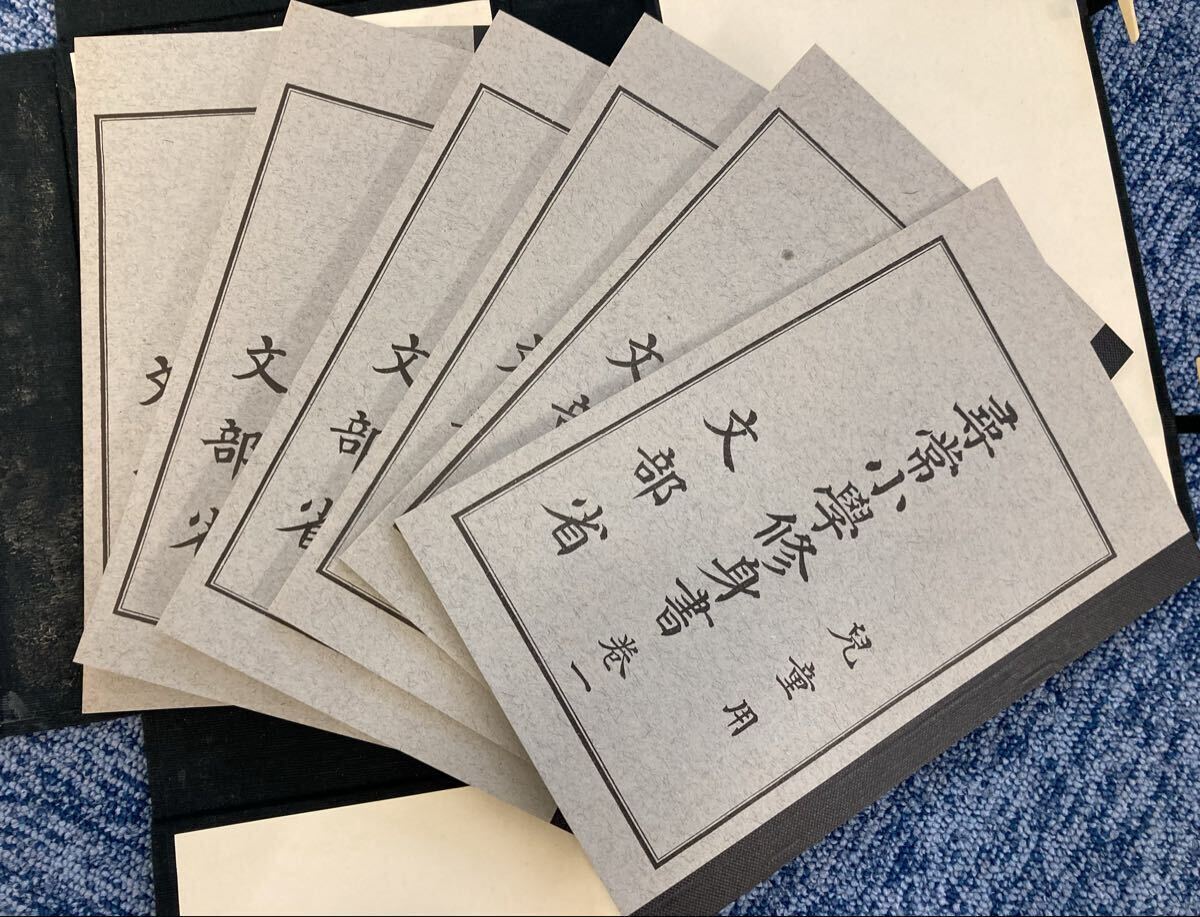 尋常小學修身書 卷一
兒童用
文部省
文部
文部省
文部省
文
文